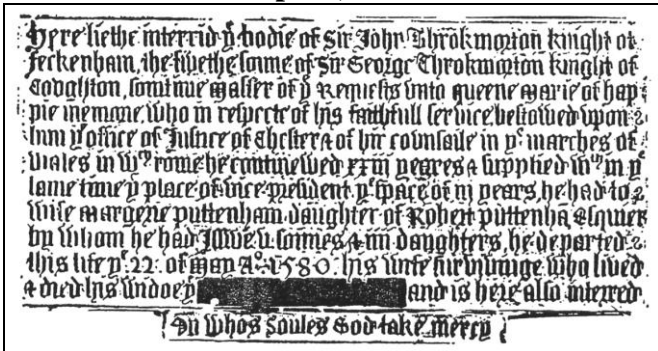 Here liethe interrid yͤ bodie of Sir John Throkmorton knight of
feckenham, the fivethe sonne of Sir George Throkmorton knight of
Covghton, somtime Master of yͤ Requests vnto queene Marie of hap-
pie memorie, who in respecte of his faithfull service bestowed vpon
him yͤ office of Justice of Chester & of hir covnsaile in yͤ marches of
wales in wͨͪ rowme he continewed xxiii yeares & supplied wͭͪin yͤ
same time yͤ place of vice president yͤ space of iii years, he had to
wife Margerie puttenham daughter of Robert puttenhā Esquier
by whom he had Issve v sonnes & iiii daughters, he departed
this life yͤ 22 of May Aͦ 1580 his wife surviuinge who lived
& died his widoe and is here also interred
On whos soules God take mercy